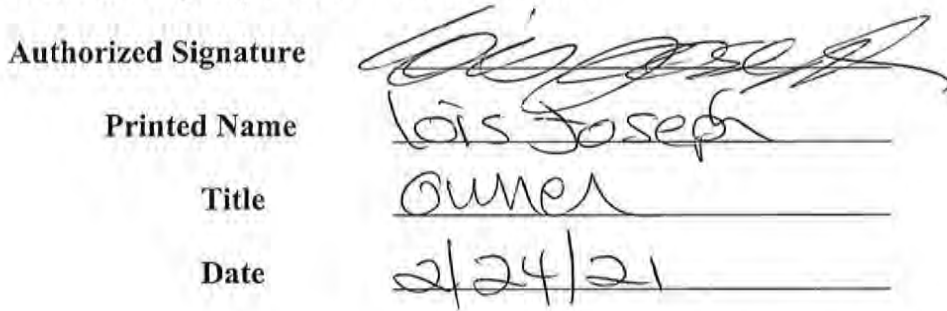 Authorized Signature Lois Joseph
Printed Name Lois Joseph
Title owner
Date 2/24/21